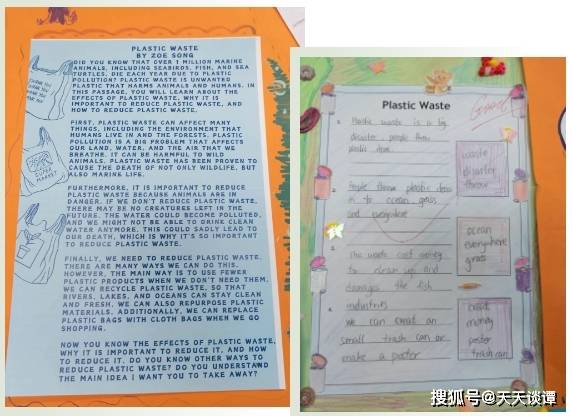 PLASTIC WASTE
BY ZOE SONG
DID YOU KNOW THAT OVER 1 MILLION MARINE
ANIMALS, INCLUDING SEABIRDS, FISH, AND SEA
TURTLES, DIE EACH YEAR DUE TO PLASTIC
POLLUTION? PLASTIC WASTE IS UNWANTED
PLASTIC THAT HARMS ANIMALS AND HUMANS. IN
THIS PASSAGE, YOU WILL LEARN ABOUT THE
EFFECTS OF PLASTIC WASTE, WHY IT IS
IMPORTANT TO REDUCE PLASTIC WASTE, AND
HOW TO REDUCE PLASTIC WASTE.
FIRST, PLASTIC WASTE CAN AFFECT MANY
THINGS, INCLUDING THE ENVIRONMENT THAT
HUMANS LIVE IN AND THE FORESTS. PLASTIC
POLLUTION IS A BIG PROBLEM THAT AFFECTS
OUR LAND, WATER, AND THE AIR THAT WE
BREATHE. IT CAN BE HARMFUL TO WILD
ANIMALS. PLASTIC WASTE HAS BEEN PROVEN TO
CAUSE THE DEATH OF NOT ONLY WILDLIFE, BUT
ALSO MARINE LIFE.
FURTHERMORE, IT IS IMPORTANT TO REDUCE
PLASTIC WASTE BECAUSE ANIMALS ARE IN
DANGER. IF WE DON'T REDUCE PLASTIC WASTE,
THERE MAY BE NO CREATURES LEFT IN THE
FUTURE. THE WATER COULD BECOME POLLUTED,
AND WE MIGHT NOT BE ABLE TO DRINK CLEAN
WATER ANYMORE. THIS COULD SADLY LEAD TO
OUR DEATH, WHICH IS WHY IT'S SO IMPORTANT
TO REDUCE PLASTIC WASTE.
FINALLY, WE NEED TO REDUCE PLASTIC WASTE.
THERE ARE MANY WAYS WE CAN DO THIS.
HOWEVER, THE MAIN WAY IS TO USE FEWER
PLASTIC PRODUCTS WHEN WE DON'T NEED THEM.
WE CAN RECYCLE PLASTIC WASTE, SO THAT
RIVERS, LAKES, AND OCEANS CAN STAY CLEAN
AND FRESH. WE CAN ALSO REPURPOSE PLASTIC
MATERIALS. ADDITIONALLY, WE CAN REPLACE
PLASTIC BAGS WITH CLOTH BAGS WHEN WE GO
SHOPPING.
NOW YOU KNOW THE EFFECTS OF PLASTIC WASTE,
WHY IT IS IMPORTANT TO REDUCE IT, AND HOW
TO REDUCE IT. DO YOU KNOW OTHER WAYS TO
REDUCE PLASTIC WASTE? DO YOU UNDERSTAND
THE MAIN IDEA I WANT YOU TO TAKE AWAY?
THANK YOU
SUPER
MARKET
Plastic Waste
Good
1. Plastic waste is a big
disaster people throw
plastic
waste
disaster
throw
2. People throw plastic
in to ocean grass
and everywhere
ocean
everywhere
grass
3. The waste cost money
to clean up and
damages the fish
industries
4. we can creat an
small trash can or
make a poster
creat
money
poster
trash can
搜狐号@天天谈谭